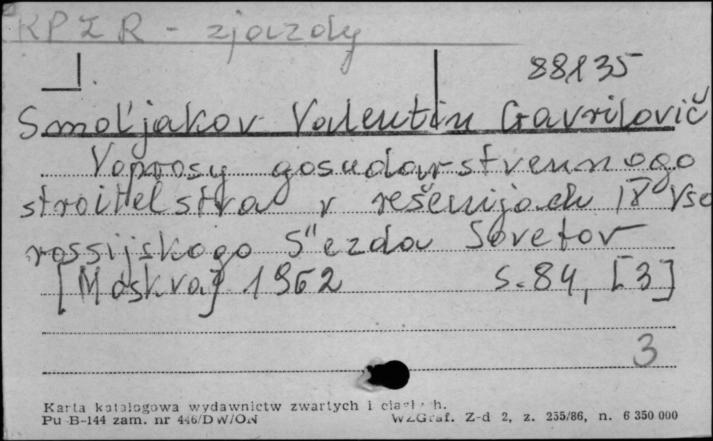 KPZR - zjazdy
88135
Smol'jakov Valentin Gavrilovič
Voprosy gosudarstvennogo
stroitel'stva v rešenijach IX Vse
rossijskogo S"ezda Sovetov
[Moskva] 1962 s. 84, [3]
3
Karta katalogowa wydawnictw zwartych i ciągłych.
Pu-B-144 zam. nr 446/DW/ON WZGraf. Z-d 2, z. 255/86, n. 6 350 000